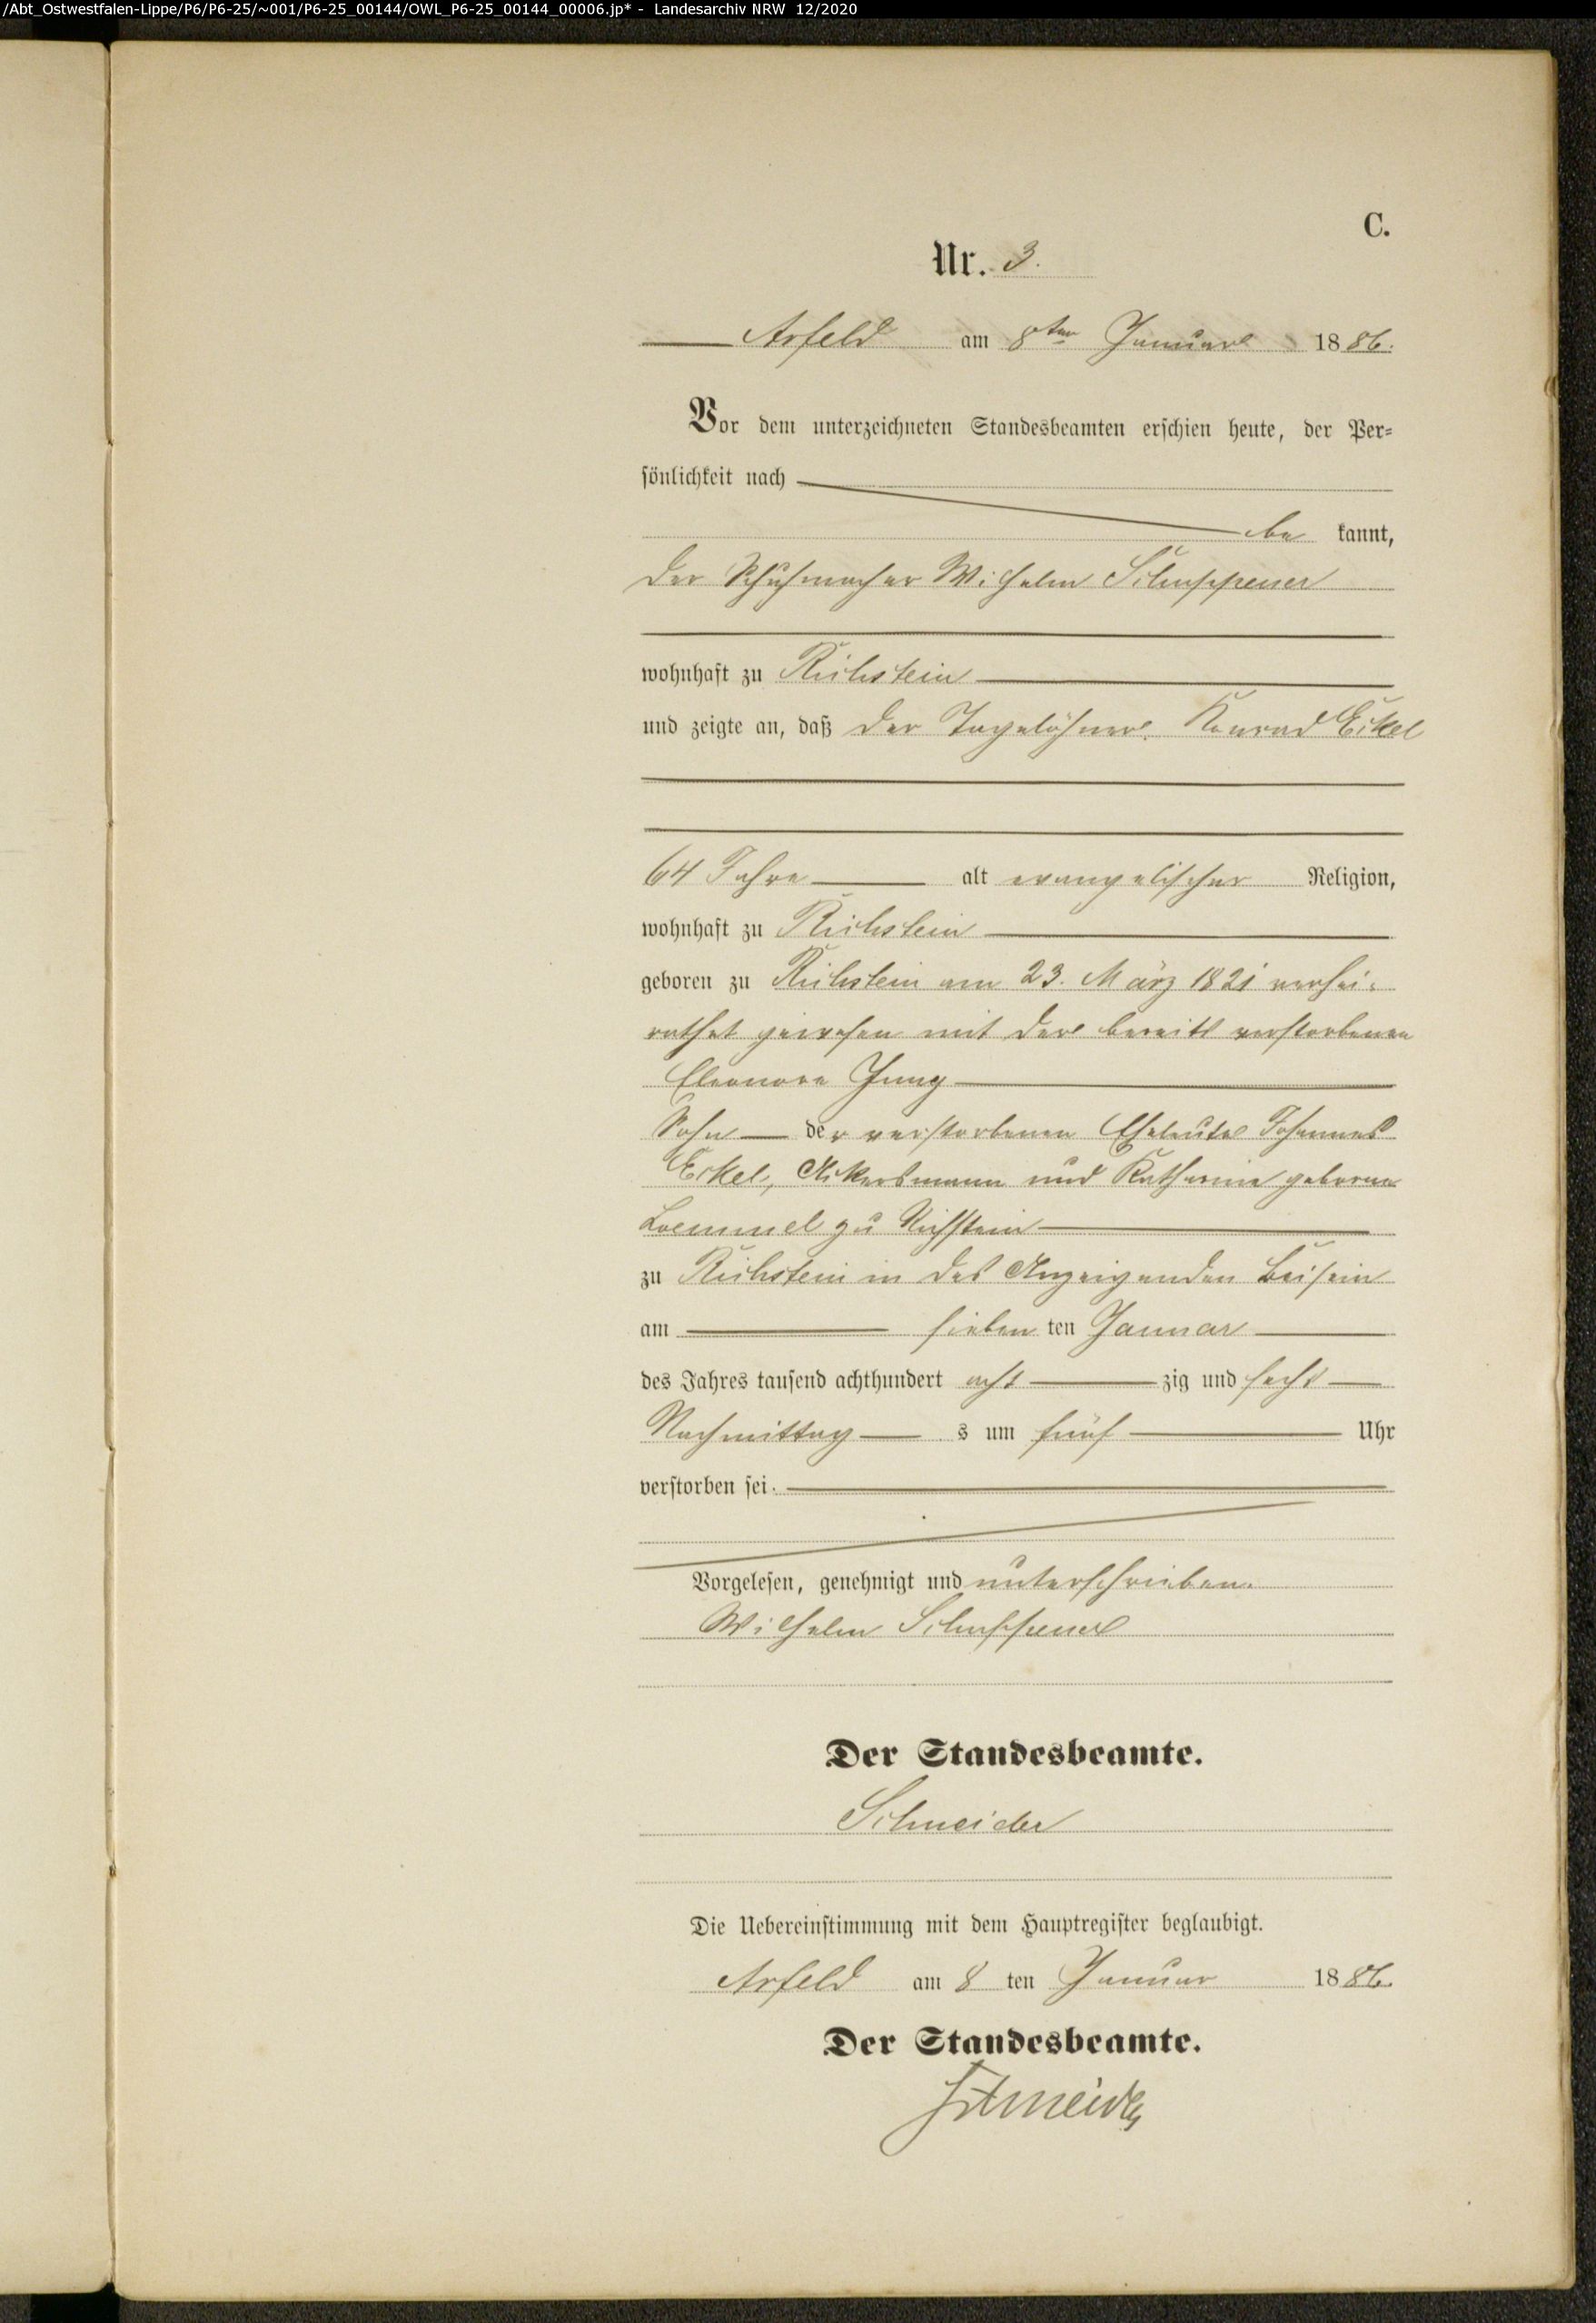 /Abt_Ostwestfalen-Lippe/P6/P6-25/~001/P6-25_00144/OWL_P6-25_00144_00006.jp* - Landesarchiv NRW 12/2020
C.
Nr. 3.
Arfeld am 8ten Januar 1886.
Vor dem unterzeichneten Standesbeamten erschien heute, der Per-
sönlichkeit nach
be kannt,
der Schuhmacher Wilhelm Schuppener
wohnhaft zu Richstein
und zeigte an, daß der Tagelöhner Konrad Eckel
64 Jahre alt evangelischer Religion,
wohnhaft zu Richstein
geboren zu Richstein am 23. März 1821 verhei-
rathet gewesen mit der bereits verstorbenen
Eleonore Jung
Sohn der verstorbenen Eheleute Johannes
Eckel, Ackersmann und Katharine geborene
Loemmel zu Richstein
zu Richstein in des Anzeigenden Beisein
am sieben ten Januar
des Jahres tausend achthundert acht zig und sechs
Nachmittag s um fünf Uhr
verstorben sei.
Vorgelesen, genehmigt und unterschrieben.
Wilhelm Schuppener
Der Standesbeamte.
Schneider
Die Uebereinstimmung mit dem Hauptregister beglaubigt.
Arfeld am 8 ten Januar 1886.
Der Standesbeamte.
Schneider